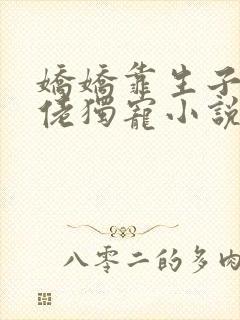 嬌嬌靠生子
佬獨寵小説
八零二的多肉